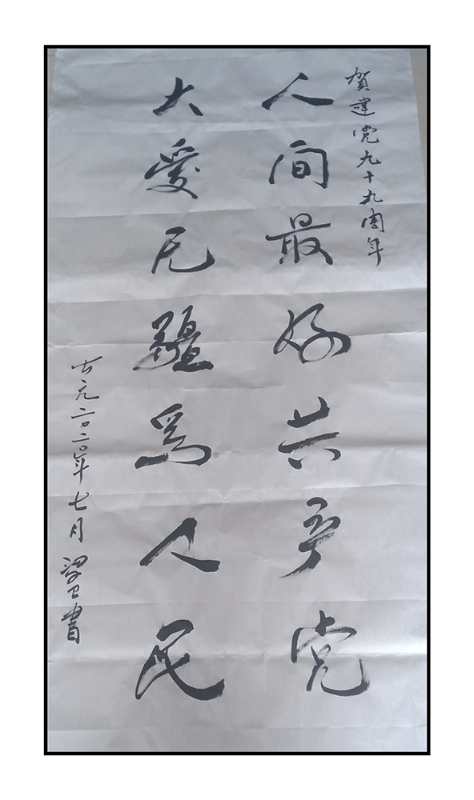 賀建党九十九周年
人间最好共产党
大愛无疆為人民
公元二〇二〇年七月 梁 書